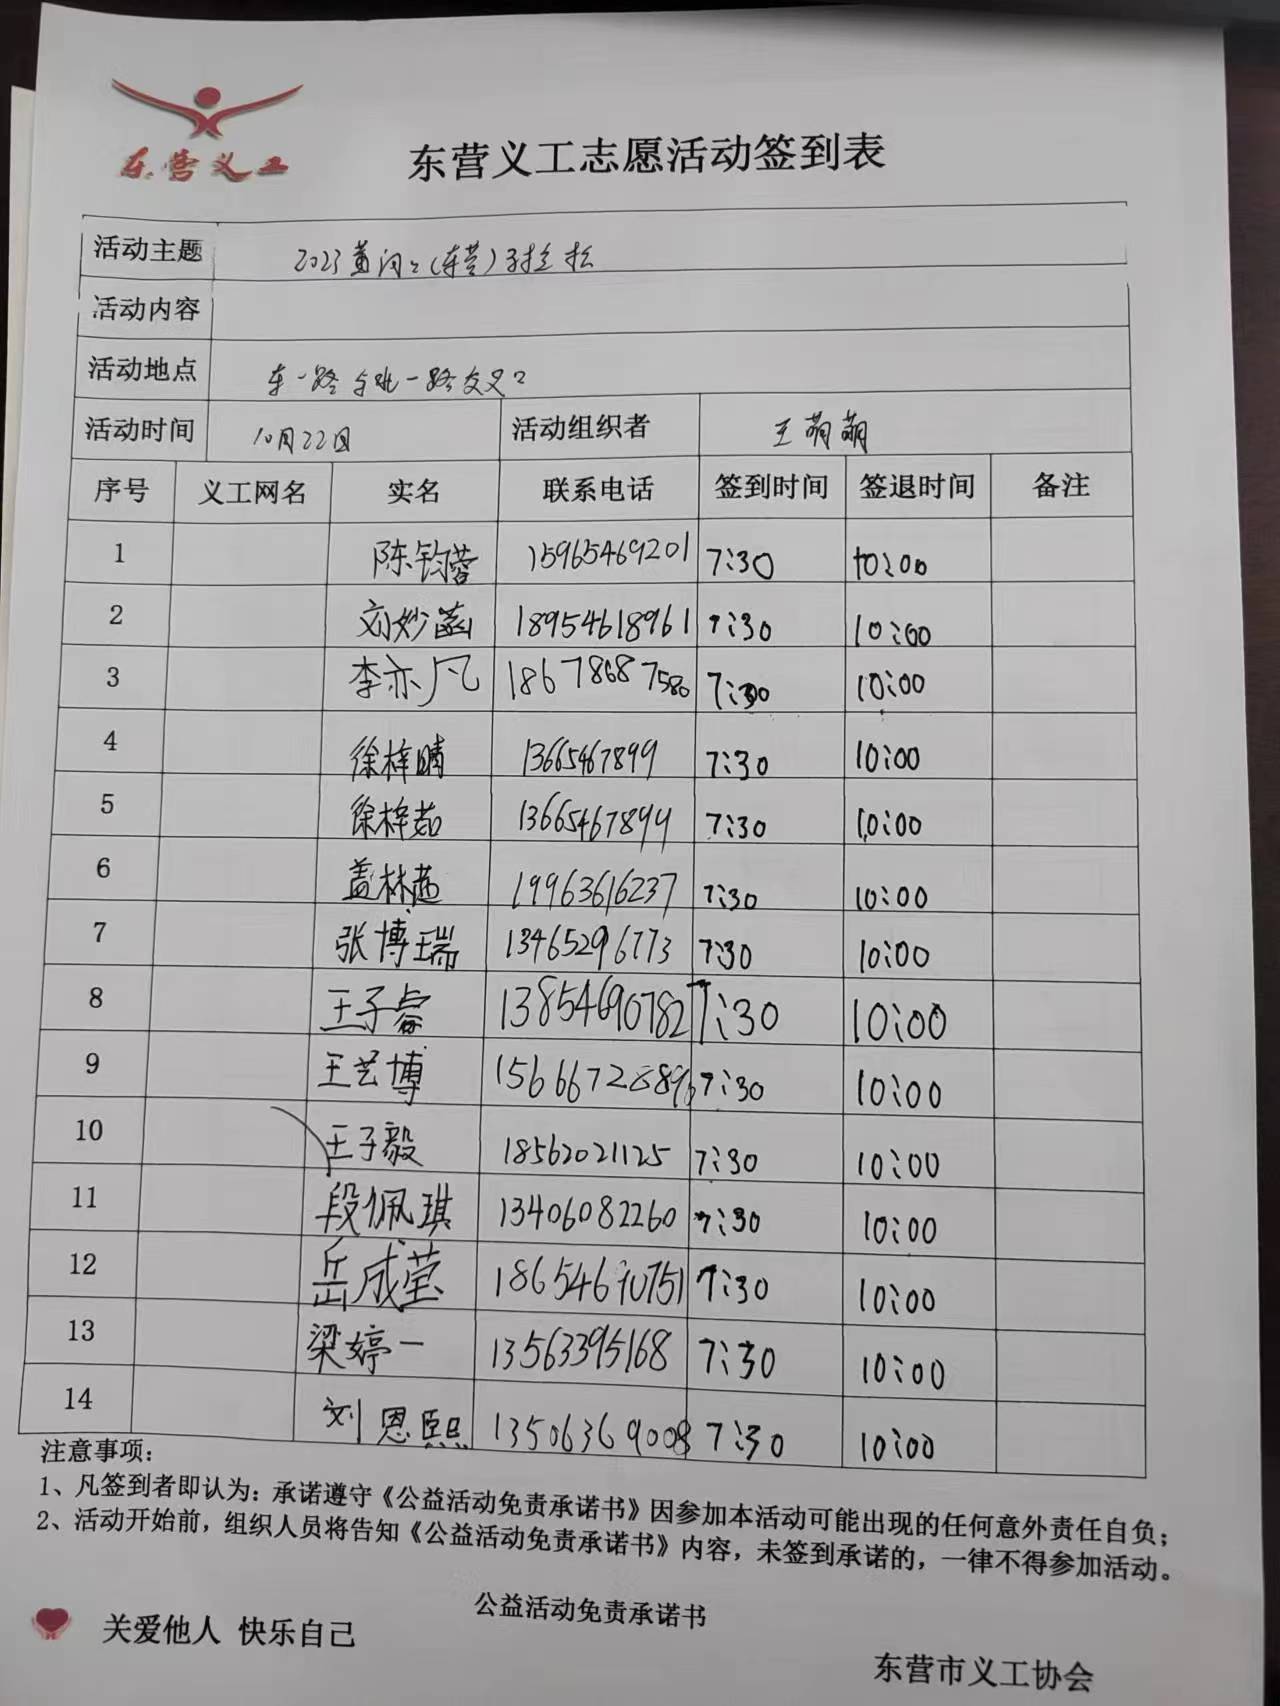 东营义工
东营义工志愿活动签到表
活动主题 2023黄河口(东营)马拉松
活动内容
活动地点 东一路与北一路交叉口
活动时间 10月22日 活动组织者 王萌萌
序号 义工网名 实名 联系电话 签到时间 签退时间 备注
1 陈钧蓉 15965469201 7:30 10:00
2 刘妙菡 18954618961 7:30 10:00
3 李亦凡 18678687580 7:30 10:00
4 徐梓晴 13665467899 7:30 10:00
5 徐梓茹 13665467899 7:30 10:00
6 盖林茜 19963616237 7:30 10:00
7 张博瑞 13465296773 7:30 10:00
8 王子睿 13854690782 7:30 10:00
9 王艺博 7:30 10:00
10 王子毅 18562021125 7:30 10:00
11 段佩琪 13406082260 7:30 10:00
12 岳成莹 18654670751 7:30 10:00
13 梁婷一 13563395168 7:30 10:00
14 刘恩熙 13506369008 7:30 10:00
注意事项：
1、凡签到者即认为：承诺遵守《公益活动免责承诺书》因参加本活动可能出现的任何意外责任自负；
2、活动开始前，组织人员将告知《公益活动免责承诺书》内容，未签到承诺的，一律不得参加活动。
公益活动免责承诺书
关爱他人 快乐自己
东营市义工协会